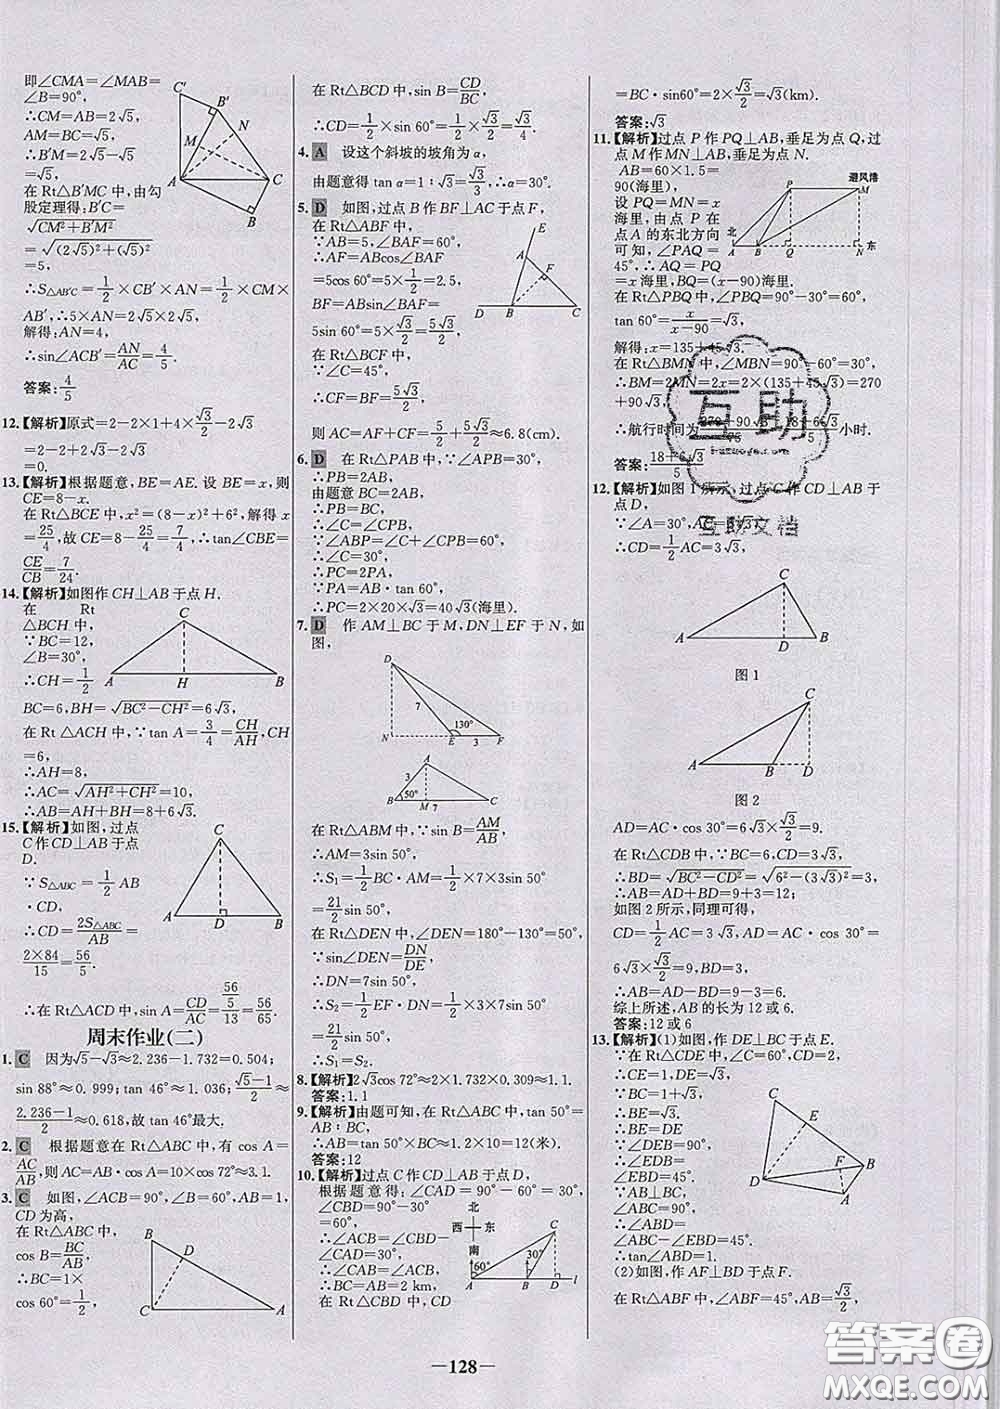 即∠CMA=∠MAB=
∠B=90°,
∴CM=AB=2√5,
AM=BC=√5,
∴B′M=2√5-√5
=√5,
在 Rt△B′MC 中,由勾
股定理得:B′C=
√(CM²+B′M²)
=√((2√5)²+(√5)²)
=5,
∴S△AB′C=1/2×CB′×AN=1/2×CM×
AB′,∴5×AN=2√5×2√5,
解得:AN=4,
∴sin∠ACB′=AN/AC=4/5.
答案:4/5
12.【解析】原式=2-2×1+4×√3/2-2√3
=2-2+2√3-2√3
=0.
13.【解析】根据题意,BE=AE.设 BE=x,则
CE=8-x.
在 Rt△BCE 中,x²=(8-x)²+6²,解得 x
=25/4,故 CE=8-25/4=7/4,∴tan∠CBE=
CE/CB=7/24.
14.【解析】如图作 CH⊥AB 于点 H.
在 Rt
△BCH 中,
∵BC=12,
∠B=30°,
∴CH=1/2
BC=6,BH=√(BC²-CH²)=6√3,
在 Rt△ACH 中,∵tan A=3/4=CH/AH,CH
=6,
∴AH=8,
∴AC=√(AH²+CH²)=10,
∴AB=AH+BH=8+6√3.
15.【解析】如图,过点
C作 CD⊥AB 于点
D.
∵S△ABC=1/2 AB
·CD,
∴CD=2S△ABC/AB=
2×84/15=56/5,
∴在 Rt△ACD 中,sin A=CD/AC=56/5/13=56/65.
周末作业(二)
1. C 因为√5-√3≈2.236-1.732=0.504;
sin 88°≈0.999;tan 46°≈1.036;(√5-1)/2≈
(2.236-1)/2=0.618,故 tan 46°最大.
2. C 根据题意在 Rt△ABC 中,有 cos A=
AC/AB,则 AC=AB·cos A=10×cos 72°≈3.1.
3. C 如图,∠ACB=90°,∠B=60°,AB=1,
CD 为高,
在 Rt△ABC 中,
cos B=BC/AB,
∴BC=1×
cos 60°=1/2,
在 Rt△BCD 中,sin B=CD/BC
∴CD=1/2×sin 60°=1/2×√3/2=√3/4.
4. A 设这个斜坡的坡角为 α,
由题意得 tan α=1∶√3=√3/3,∴α=30°.
5. D 如图,过点 B 作 BF⊥AC 于点 F,
在 Rt△ABF 中,
∵AB=5,∠BAF=60°,
∴AF=ABcos∠BAF=
5cos 60°=5×1/2=2.5,
BF=ABsin∠BAF=
5sin 60°=5×√3/2=5√3/2,
在 Rt△BCF 中,
∵∠C=45°,
∴CF=BF=5√3/2,
则 AC=AF+CF=5/2+5√3/2≈6.8(cm).
6. D 在 Rt△PAB 中,∵∠APB=30°,
∴PB=2AB,
由题意 BC=2AB,
∴PB=BC,
∴∠C=∠CPB,
∵∠ABP=∠C+∠CPB=60°,
∴∠C=30°,
∴PC=2PA,
∵PA=AB·tan 60°,
∴PC=2×20×√3=40√3(海里).
7. D 作 AM⊥BC 于 M,DN⊥EF 于 N,如
图,
在 Rt△ABM 中,∵sin B=AM/AB,
∴AM=3sin 50°,
∴S₁=1/2BC·AM=1/2×7×3sin 50°
=21/2sin 50°,
在 Rt△DEN 中,∠DEN=180°-130°=50°,
∵sin∠DEN=DN/DE,
∴DN=7sin 50°,
∴S₂=1/2EF·DN=1/2×3×7sin 50°
=21/2sin 50°,
∴S₁=S₂.
8.【解析】2√3cos 72°≈2×1.732×0.309≈1.1.
答案:1.1
9.【解析】由题可知,在 Rt△ABC 中,tan 50°=
AB∶BC,
∴AB=tan 50°×BC≈1.2×10=12(米).
答案:12
10.【解析】过点 C 作 CD⊥AB 于点 D,
根据题意得:∠CAD=90°-60°=30°,
∠CBD=90°-30°
=60°,
∴∠ACB=∠CBD-
∠CAD=30°,
∴∠CAB=∠ACB,
∴BC=AB=2 km,
在 Rt△CBD 中,CD
=BC·sin60°=2×√3/2=√3(km).
答案:√3
11.【解析】过点 P 作 PQ⊥AB,垂足为点 Q,过
点 M 作 MN⊥AB,垂足为点 N.
AB=60×1.5=
90(海里)
设 PQ=MN=x
海里,由点 P 在
点 A 的东北方向
可知,∠PAQ=
45°,∴AQ=PQ
=x 海里,BQ=(x-90)海里.
在 Rt△PBQ 中,∠PBQ=90°-30°=60°,
tan 60°=x/(x-90)=√3,
解得:x=135+45√3.
在 Rt△BMN 中,∠MBN=90°-60°=30°,
∴BM=2MN=2x=2×(135+45√3)=270
+90√3,
∴航行时间为(270+90√3)/75=(18+6√3)/5小时.
答案:(18+6√3)/5
12.【解析】如图 1 所示,过点 C 作 CD⊥AB 于
点 D,
∵∠A=30°,AC=6√3,
∴CD=1/2AC=3√3,
图 1
图 2
AD=AC·cos 30°=6√3×√3/2=9.
在 Rt△CDB 中,∵BC=6,CD=3√3,
∴BD=√(BC²-CD²)=√(6²-(3√3)²)=3,
∴AB=AD+BD=9+3=12;
如图 2 所示,同理可得,
CD=1/2AC=3√3,AD=AC·cos 30°=
6√3×√3/2=9,BD=3,
∴AB=AD-BD=9-3=6.
综上所述,AB 的长为 12 或 6.
答案:12 或 6
13.【解析】(1)如图,作 DE⊥BC 于点 E.
∵在 Rt△CDE 中,∠C=60°,
∴CE=√3/3DE,
∵BC=1+√3,
∴BE=√3.
∴BE=DE
∴∠EDB=
∠EBD=45°.
∵AB⊥BC,
∠ABC=90°,
∴∠ABD=
∠ABC-∠EBD=45°.
∴tan∠ABD=1.
(2)如图,作 AF⊥BD 于点 F.
在 Rt△ABF 中,∠ABF=45°,AB=√3/2,
—128—
互助
互助文档
答案圈
MXQE.COM